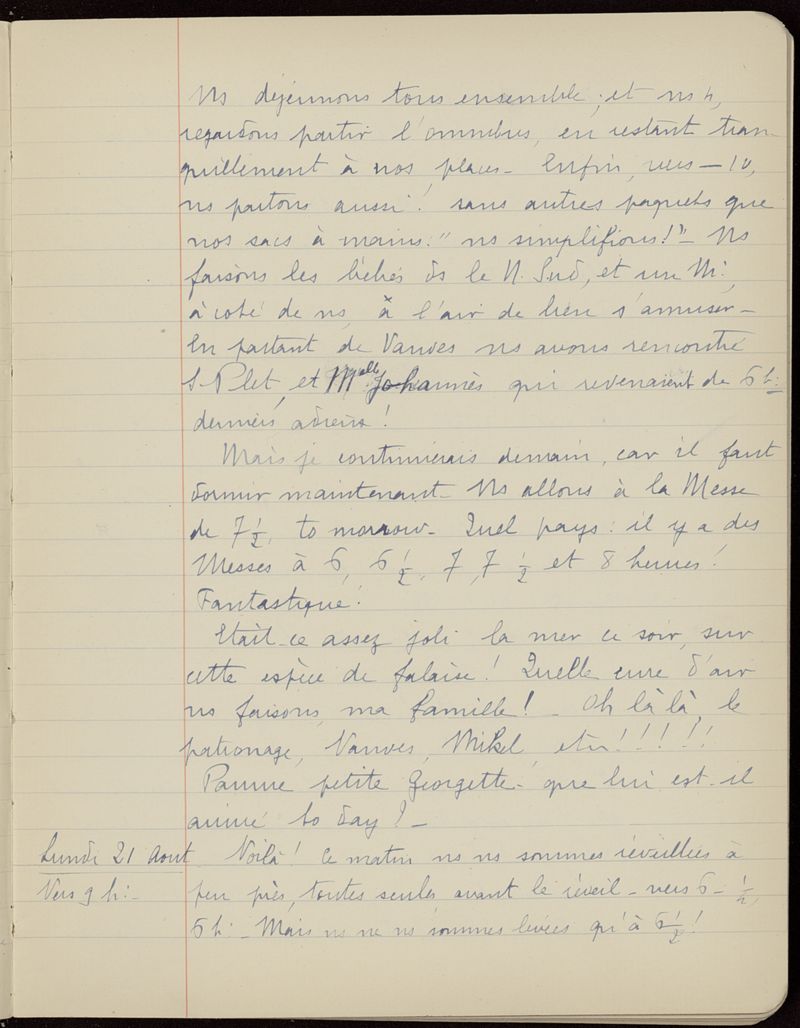 Ns déjeunons tous ensemble, et ns
regardons partir l'omnibus, en restant tran-
quillement à nos places - Enfin, vers - 10,
ns partons aussi! sans autres paquets que
nos sacs à mains: "ns simplifions!" - Ns
faisons les bébés ds le N. Sud, et un Mr,
à coté de ns, à l'air de bien s'amuser -
En partant de Vanves ns avons rencontré
S. Plet, et Melle Johannès qui revenaient de 6h:
derniers adieux!
Mais je continuerais demain, car il faut
dormir maintenant - Ns allons à la Messe
de 7 1/2, to morrow - Quel pays: il y a des
Messes à 6, 6 1/2, 7, 7 1/2 et 8 heures!
Fantastique!
Etait-ce assez joli la mer ce soir, sur
cette espèce de falaise! Quelle cure d'air
ns faisons, ma famille! - Oh là là, le
patronage, Vanves, Mikel, etc!!!!!
Pauvre petite Georgette - que lui est-il
arrivé to day? -
Lundi 21 Aout Voilà! Ce matin ns ns sommes réveillées à
Vers 9 h: - peu près, toutes seules avant le réveil - vers 6 - 1/2,
6 h: - Mais ns ne ns sommes levées qu'à 6 1/2!